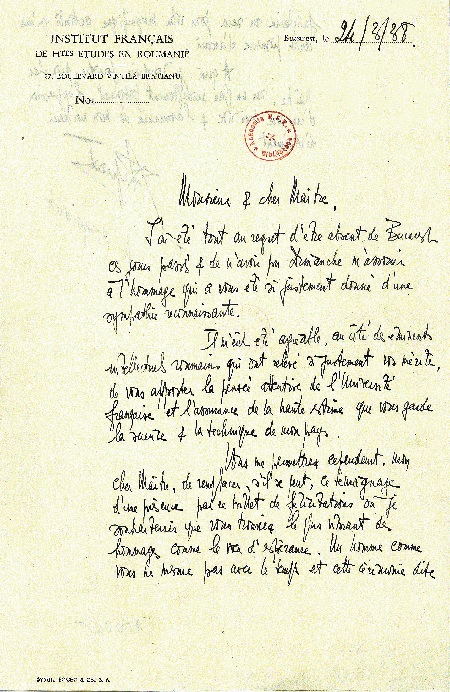 INSTITUT FRANÇAIS
DE HTES ETUDES EN ROUMANIE
77, BOULEVARD VINTILĂ BRĂTIANU
No.
Bucarest, le 24/3/38.
Monsieur & cher Maître,
J'ai été tout au regret d'être absent de Bucarest
ces jours passés & de n'avoir pu Dimanche m'associer
à l'hommage qui a vous été si justement donné d'une
sympathie reconnaissante.
Il m'eût été agréable, au côté des éminents
intellectuels roumains qui ont relevé si justement vos mérites,
de vous apporter la pensée attentive de l'Université
française et l'assurance de la haute estime que vous garde
la science & la technique de mon pays.
Vous me permettrez cependant, mon
cher Maître, de remplacer, s'il se peut, ce témoignage
d'une présence par ce billet de félicitations où je
souhaiterais que vous trouviez le plus vibrant des
hommages comme le vœu d'espérance. Un homme comme
vous ne se mesure pas avec le temps et cette cérémonie dite